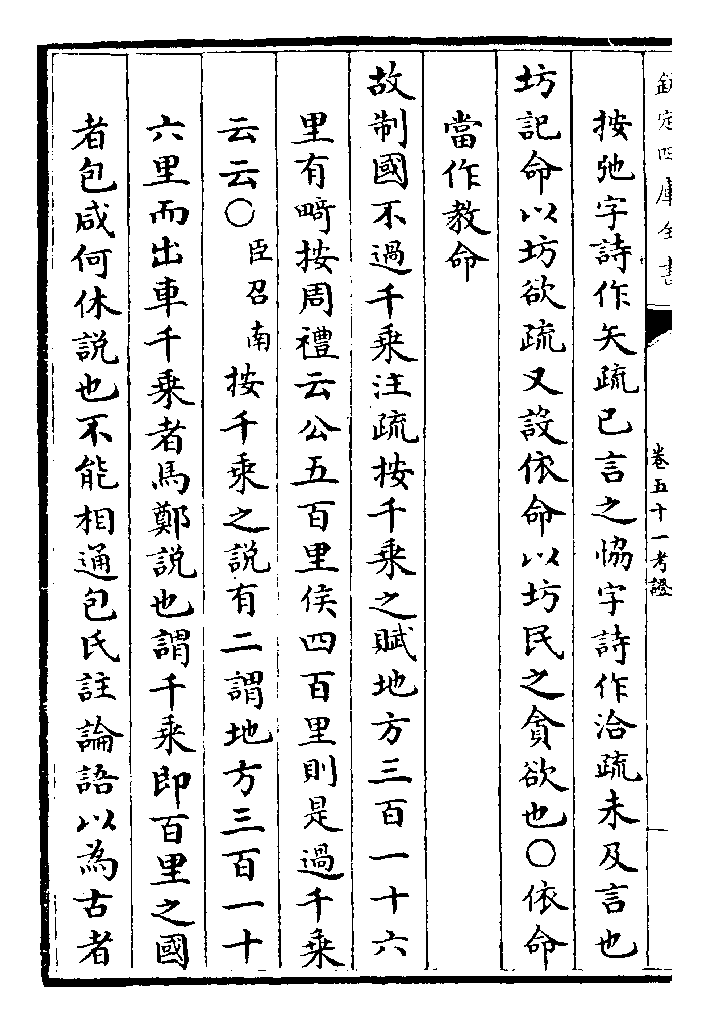 欽定四庫全書
卷五十一考證
按弛字詩作矢疏已言之恊字詩作洽疏未及言也
坊記命以坊欲疏又設依命以坊民之貪欲也○依命
當作教命
故制國不過千乘注疏按千乘之賦地方三百一十六
里有畸按周禮云公五百里侯四百里則是過千乘
云云○臣召南按千乘之說有二謂地方三百一十
六里而出車千乘者馬鄭說也謂千乘即百里之國
者包咸何休説也不能相通包氏註論語以為古者